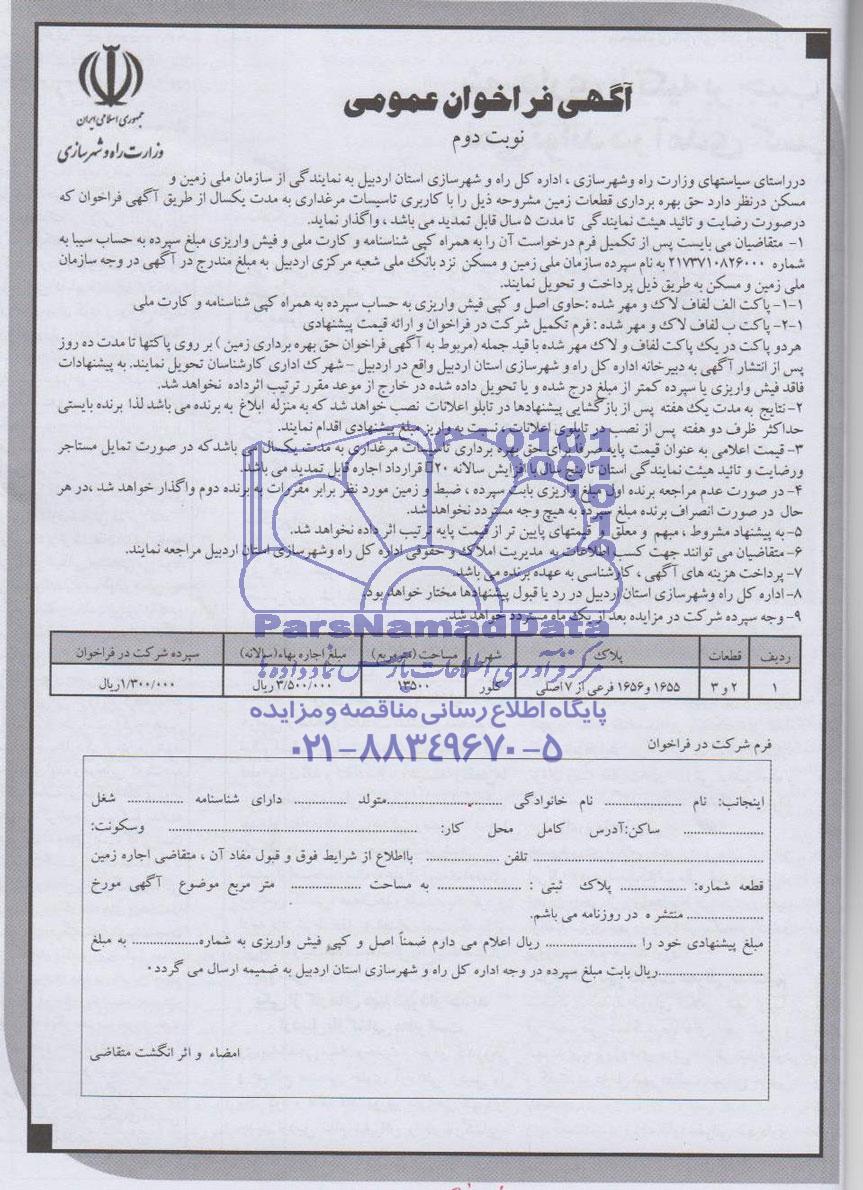 جمهوری اسلامی ایران
وزارت راه و شهرسازی
آگهی فراخوان عمومی
نوبت دوم
درراستای سیاستهای وزارت راه وشهرسازی ، اداره کل راه و شهرسازی استان اردبیل به نمایندگی از سازمان ملی زمین و
مسکن درنظر دارد حق بهره برداری قطعات زمین مشروحه ذیل را با کاربری تاسیسات مرغداری به مدت یکسال از طریق آگهی فراخوان که
درصورت رضایت و تائید هیئت نمایندگی تا مدت ۵ سال قابل تمدید می باشد ، واگذار نماید.
۱- متقاضیان می بایست پس از تکمیل فرم درخواست آن را به همراه کپی شناسنامه و کارت ملی و فیش واریزی مبلغ سپرده به حساب سیبا به
شماره ۲۱۷۳۷۱۰۸۲۶۰۰۰ به نام سپرده سازمان ملی زمین و مسکن نزد بانک ملی شعبه مرکزی اردبیل به مبلغ مندرج در آگهی در وجه سازمان
ملی زمین و مسکن به طریق ذیل پرداخت و تحویل نمایند.
۱-۱- پاکت الف لفاف لاک و مهر شده :حاوی اصل و کپی فیش واریزی به حساب سپرده به همراه کپی شناسنامه و کارت ملی
۲-۱- پاکت ب لفاف لاک و مهر شده : فرم تکمیل شرکت در فراخوان و ارائه قیمت پیشنهادی
هردو پاکت در یک پاکت لفاف و لاک مهر شده با قید جمله (مربوط به آگهی فراخوان حق بهره برداری زمین ) بر روی پاکتها تا مدت ده روز
پس از انتشار آگهی به دبیرخانه اداره کل راه و شهرسازی استان اردبیل واقع در اردبیل – شهرک اداری کارشناسان تحویل نمایند. به پیشنهادات
فاقد فیش واریزی یا سپرده کمتر از مبلغ درج شده و یا تحویل داده شده در خارج از موعد مقرر ترتیب اثرداده نخواهد شد.
۲- نتایج به مدت یک هفته پس از بازگشایی پیشنهادها در تابلو اعلانات نصب خواهد شد که به منزله ابلاغ به برنده می باشد لذا برنده بایستی
حداکثر ظرف دو هفته پس از نصب در تابلوی اعلانات ، نسبت به واریز مبلغ پیشنهادی اقدام نمایند.
۳- قیمت اعلامی به عنوان قیمت پایه صرفا برای حق بهره برداری تاسیسات مرغداری به مدت یکسال می باشد که در صورت تمایل مستاجر
ورضایت و تائید هیئت نمایندگی استان تا پنج سال با افزایش سالانه ۲۰ قرارداد اجاره قابل تمدید می باشد.
۴- در صورت عدم مراجعه برنده اول مبلغ واریزی بابت سپرده ، ضبط و زمین مورد نظر برابر مقررات به برنده دوم واگذار خواهد شد ،در هر
حال در صورت انصراف برنده مبلغ سپرده به هیچ وجه مسترد نخواهد شد.
۵- به پیشنهاد مشروط ، مبهم و معلق و قیمتهای پایین تر از قیمت پایه ترتیب اثر داده نخواهد شد.
۶- متقاضیان می توانند جهت کسب اطلاعات به مدیریت املاک و حقوقی اداره کل راه وشهرسازی استان اردبیل مراجعه نمایند.
۷- پرداخت هزینه های آگهی ، کارشناسی به عهده برنده می باشد.
۸- اداره کل راه وشهرسازی استان اردبیل در رد یا قبول پیشنهادها مختار خواهد بود.
۹- وجه سپرده شرکت در مزایده بعد از یک ماه مسترد خواهد شد.
ParsNamadData
ردیف قطعات پلاک شهر مساحت(مترمربع) مبلغ اجاره بهاء(سالانه) سپرده شرکت در فراخوان
۱ ۲ و ۳ ۱۶۵۵ و ۱۶۵۶ فرعی از ۷ اصلی کلور ۱۳۵۰۰ ۳/۵۰۰/۰۰۰ ریال ۱/۳۰۰/۰۰۰ریال
پایگاه اطلاع رسانی مناقصه و مزایده
۰۲۱-۸۸۳۴۹۶۷۰-۵
فرم شرکت در فراخوان
اینجانب: نام ................. نام خانوادگی .........................متولد ............ دارای شناسنامه ............ شغل
................. ساکن:آدرس کامل محل کار: ........................................................ وسکونت:
.................................................. تلفن ................ بااطلاع از شرایط فوق و قبول مفاد آن ، متقاضی اجاره زمین
قطعه شماره: ............... پلاک ثبتی : .................. به مساحت ................ متر مربع موضوع آگهی مورخ
................. منتشره در روزنامه می باشم.
مبلغ پیشنهادی خود را .................... ریال اعلام می دارم ضمناً اصل و کپی فیش واریزی به شماره............... به مبلغ
.......................ریال بابت مبلغ سپرده در وجه اداره کل راه و شهرسازی استان اردبیل به ضمیمه ارسال می گردد.
امضاء و اثر انگشت متقاضی